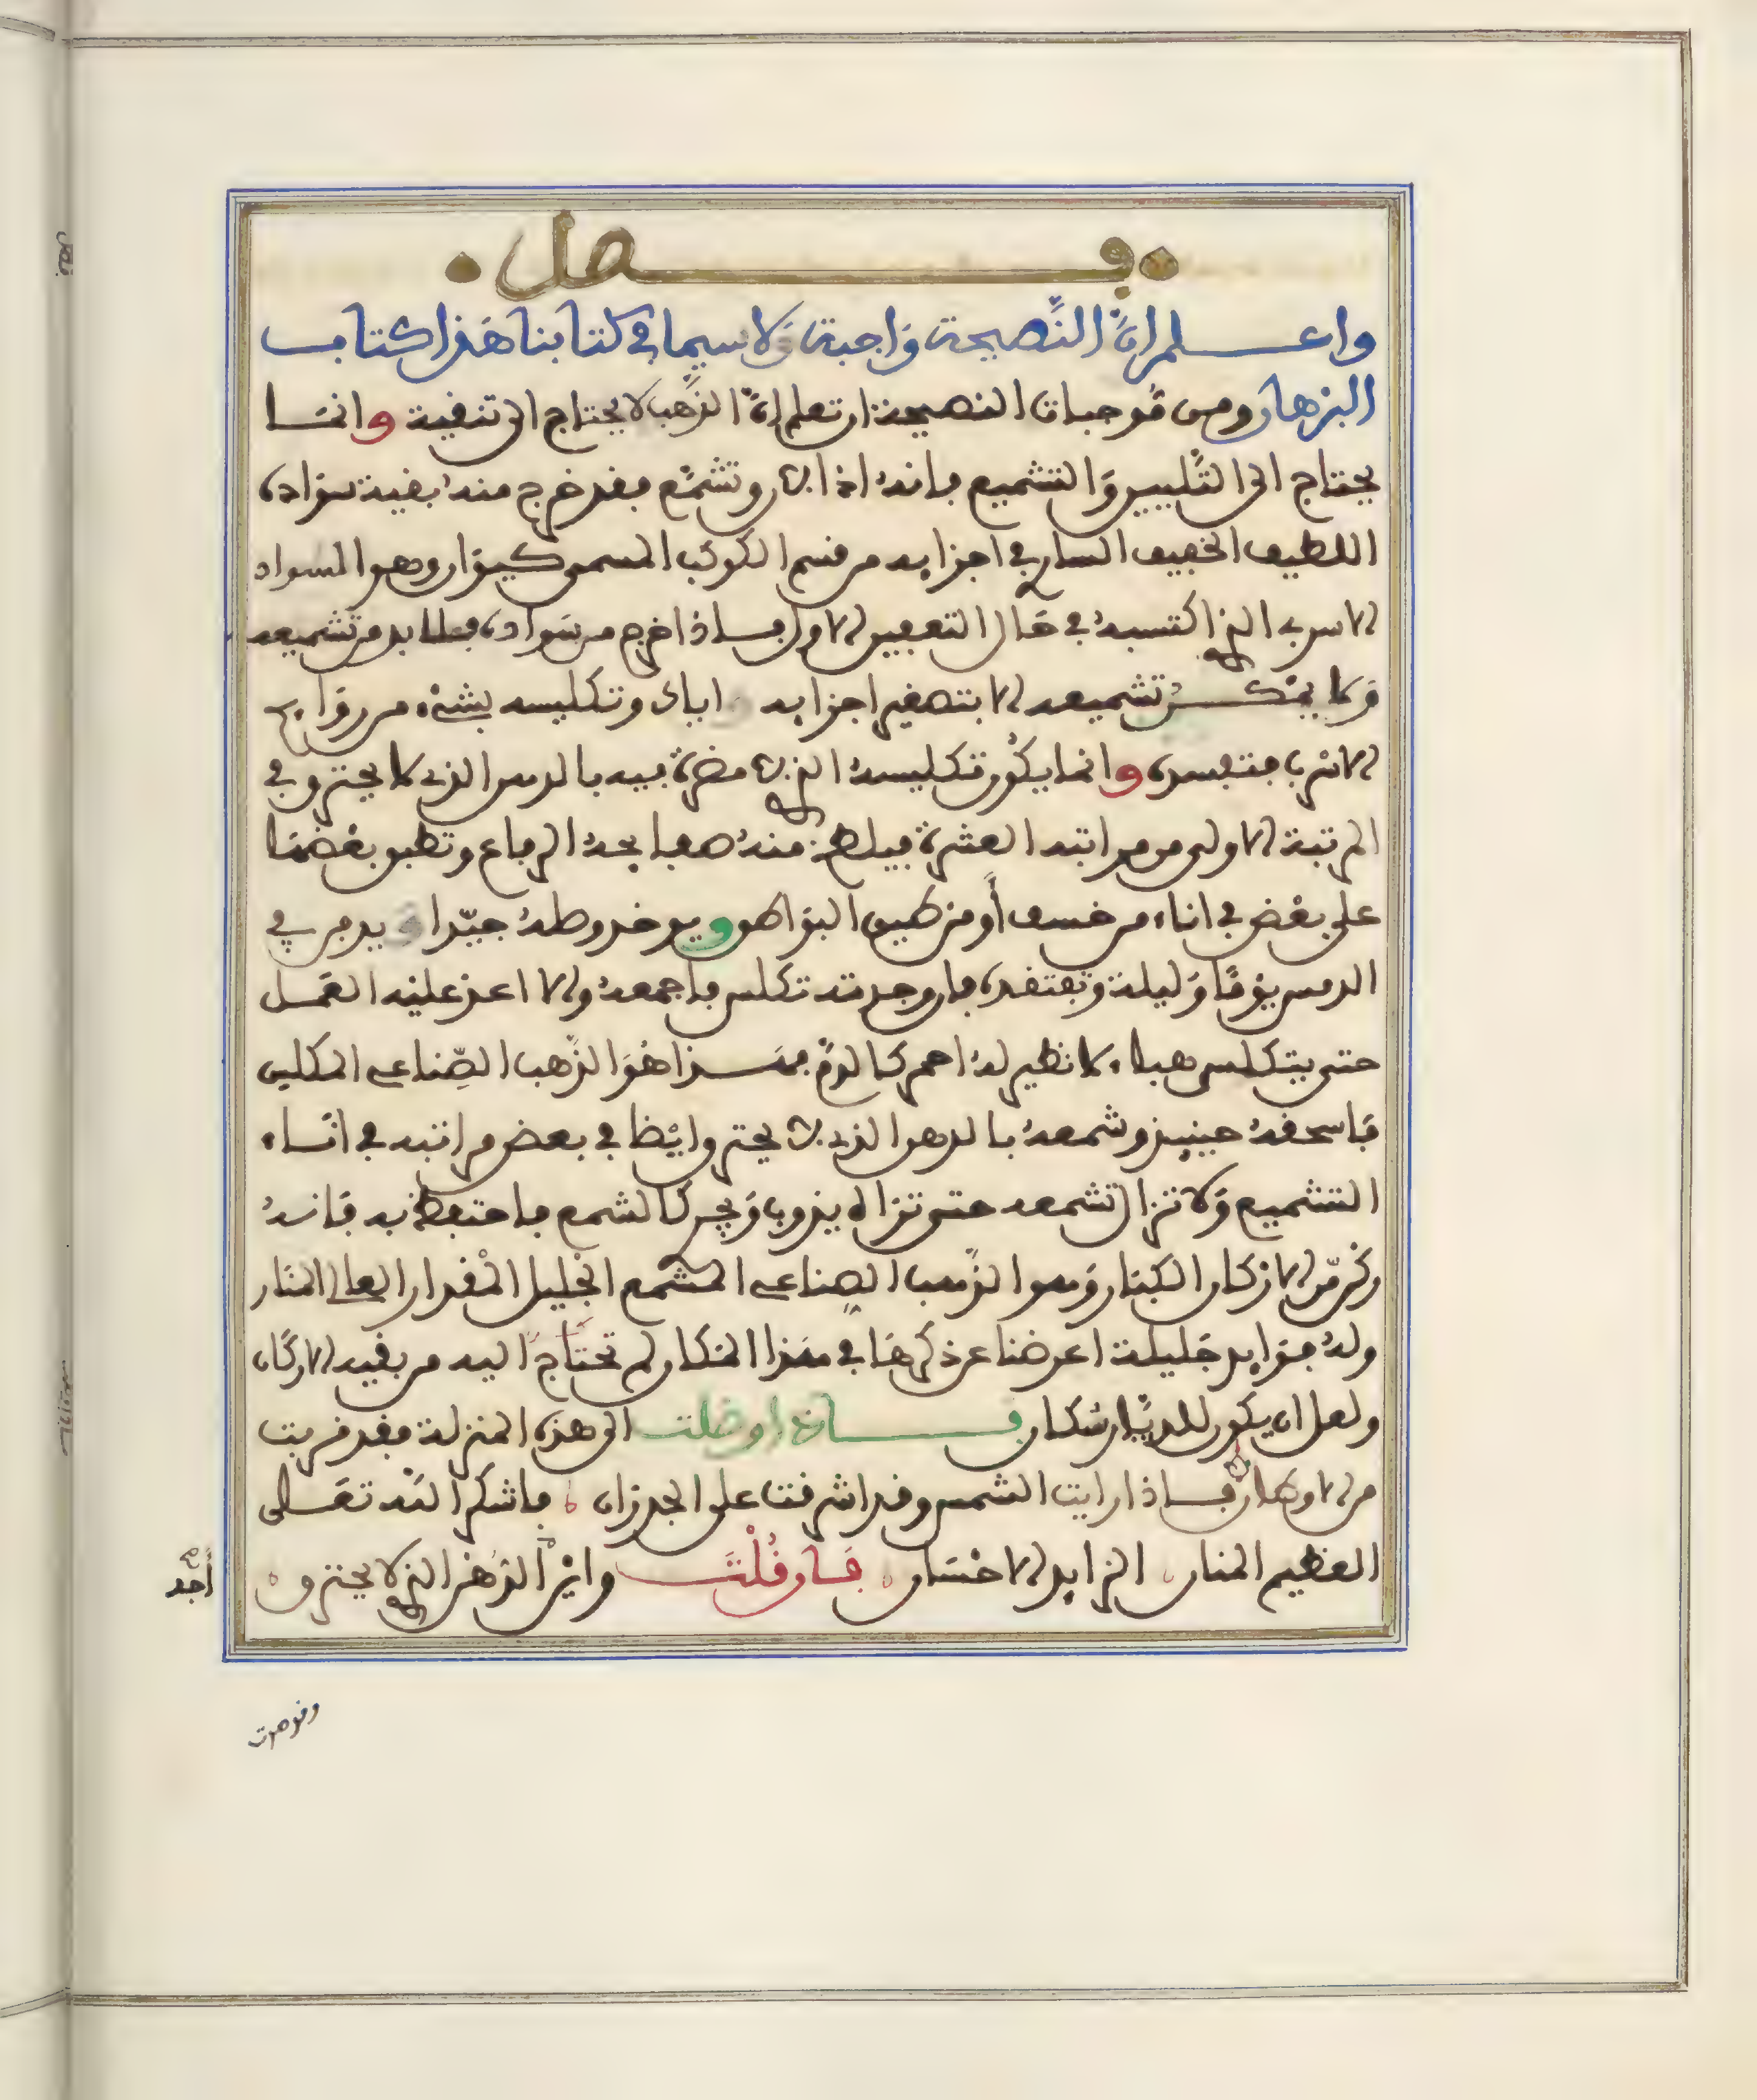 فصل
واعلم ان النَّصيحة وَاجبة وَلاسيما في كتابنا هَذا كتاب
البرهان ومن مُوجبات النصيحة ان تعلم انّ الذَّهب لا يحتاج الى تنقية وانمَا
يحتاج الى التَّليين وَالتشميع فانهُ اذا لان وتشمّع فقد خرج منهُ بقية سوَاده
اللطيف الخفيف السارى في اجزايه من قسم الكوكب المسمى كيوَان وهو السواد
الاسربى الذى اكتسبهُ في حَال التعفين الاول فاذا خرج من سَواده فلا بد من تشميعه
وَلا يمكن تشميعه الا بتصغير اجزايه و اياك وتكليسه بشىْء من روَايح
الاسرب فتفسده وانما يكُون تكليسهُ الذى لا مضرة فيه بالدهن الذى لا يحترق في
المرتبة الاولى من مراتبه العشرة فيلطخ منهُ صفايحهُ الرفاع وتطبق بعْضهَا
على بعْض في اناء من خسف أو من طين البوَاطق ويوخذ وصلهُ جيّدا و يدفن في
الدمس يوْمًا وَليلة وتفتقده فان وجدته تكلس باجمعهُ والا اعد عليْه العَمل
حتى يتكلس هباء لا نظير لهُ احمر كالدّم فهذا هُوَ الذَّهب الصِّناعى المكلس
فاسحقهُ حينيذ وشمعهُ بالدهن الذى لا يحترق ايْضا في بعض مراتبه في انَاء
التشميع وَلا تزال تشمعه حتى تراه يذوب وَيجرى كالشمع فاحتفظ به فَانهُ
ركنٌ من الاركان الكبَار وَهو الذَّهب الصناعى المشمع الجليل المقدار العالى المنَار
ولهُ فوَايد جَليلة اعرضنا عن ذكرهَا في هَذا المَكان لم تحتَاج اليه من بقيه الاركَان
ولعل ان يكون للديَّان مكان فان اوصلت الى هذه المنزلة فقد قربت
من الاوطان فاذا رايت الشمس وقد اشرقت على الجدران فاشكر اللَّه تعَالى
العَظيم المنان الزايد الاحْسَان فَان قُلْتَ واىْن الدّهْن الذى لا يحترق
وقد صرت